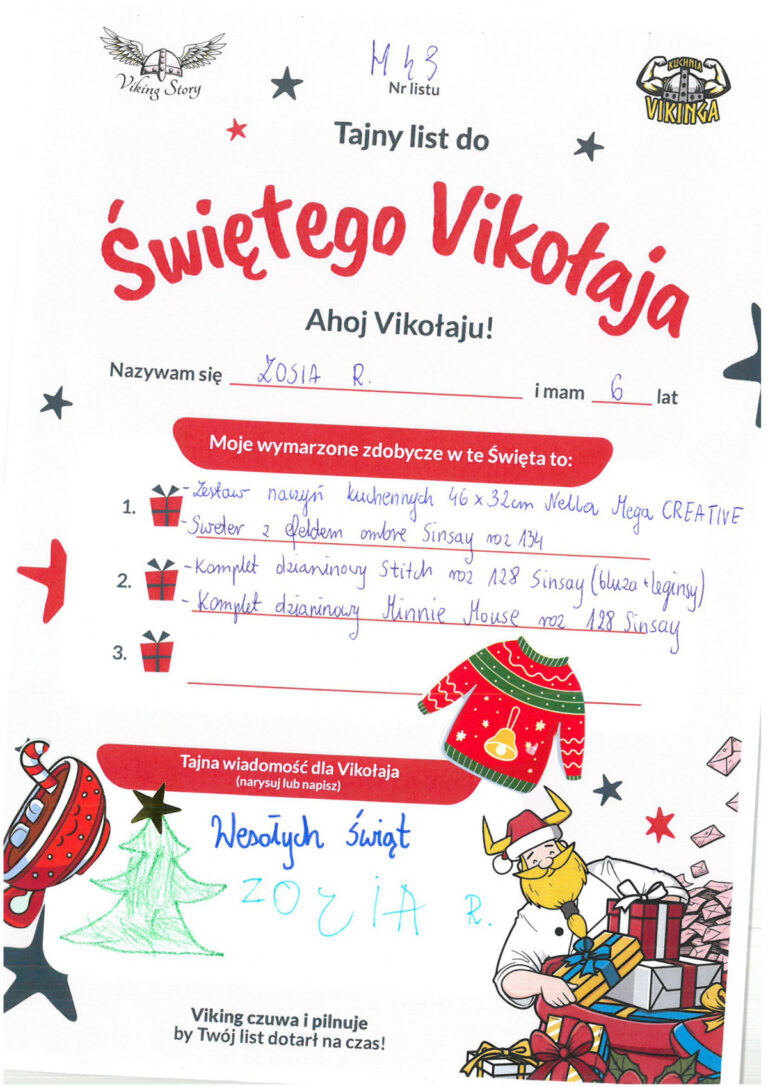 Viking Story
M43
Nr listu
KUCHNIA
VIKINGA
Tajny list do
Świętego Vikołaja
Ahoj Vikołaju!
Nazywam się ZOSIA R. i mam 6 lat
Moje wymarzone zdobycze w te Święta to:
1. - Zestaw naczyń kuchennych 46 x 32cm Nella Mega CREATIVE
- Sweter z efektem ombre Sinsay roz 134
2. - Komplet dzianinowy Stitch roz 128 Sinsay (bluza + leginsy)
- Komplet dzianinowy Minnie Mouse roz 128 Sinsay
3.
Tajna wiadomość dla Vikołaja
(narysuj lub napisz)
Wesołych świąt
ZOSIA R.
Viking czuwa i pilnuje
by Twój list dotarł na czas!